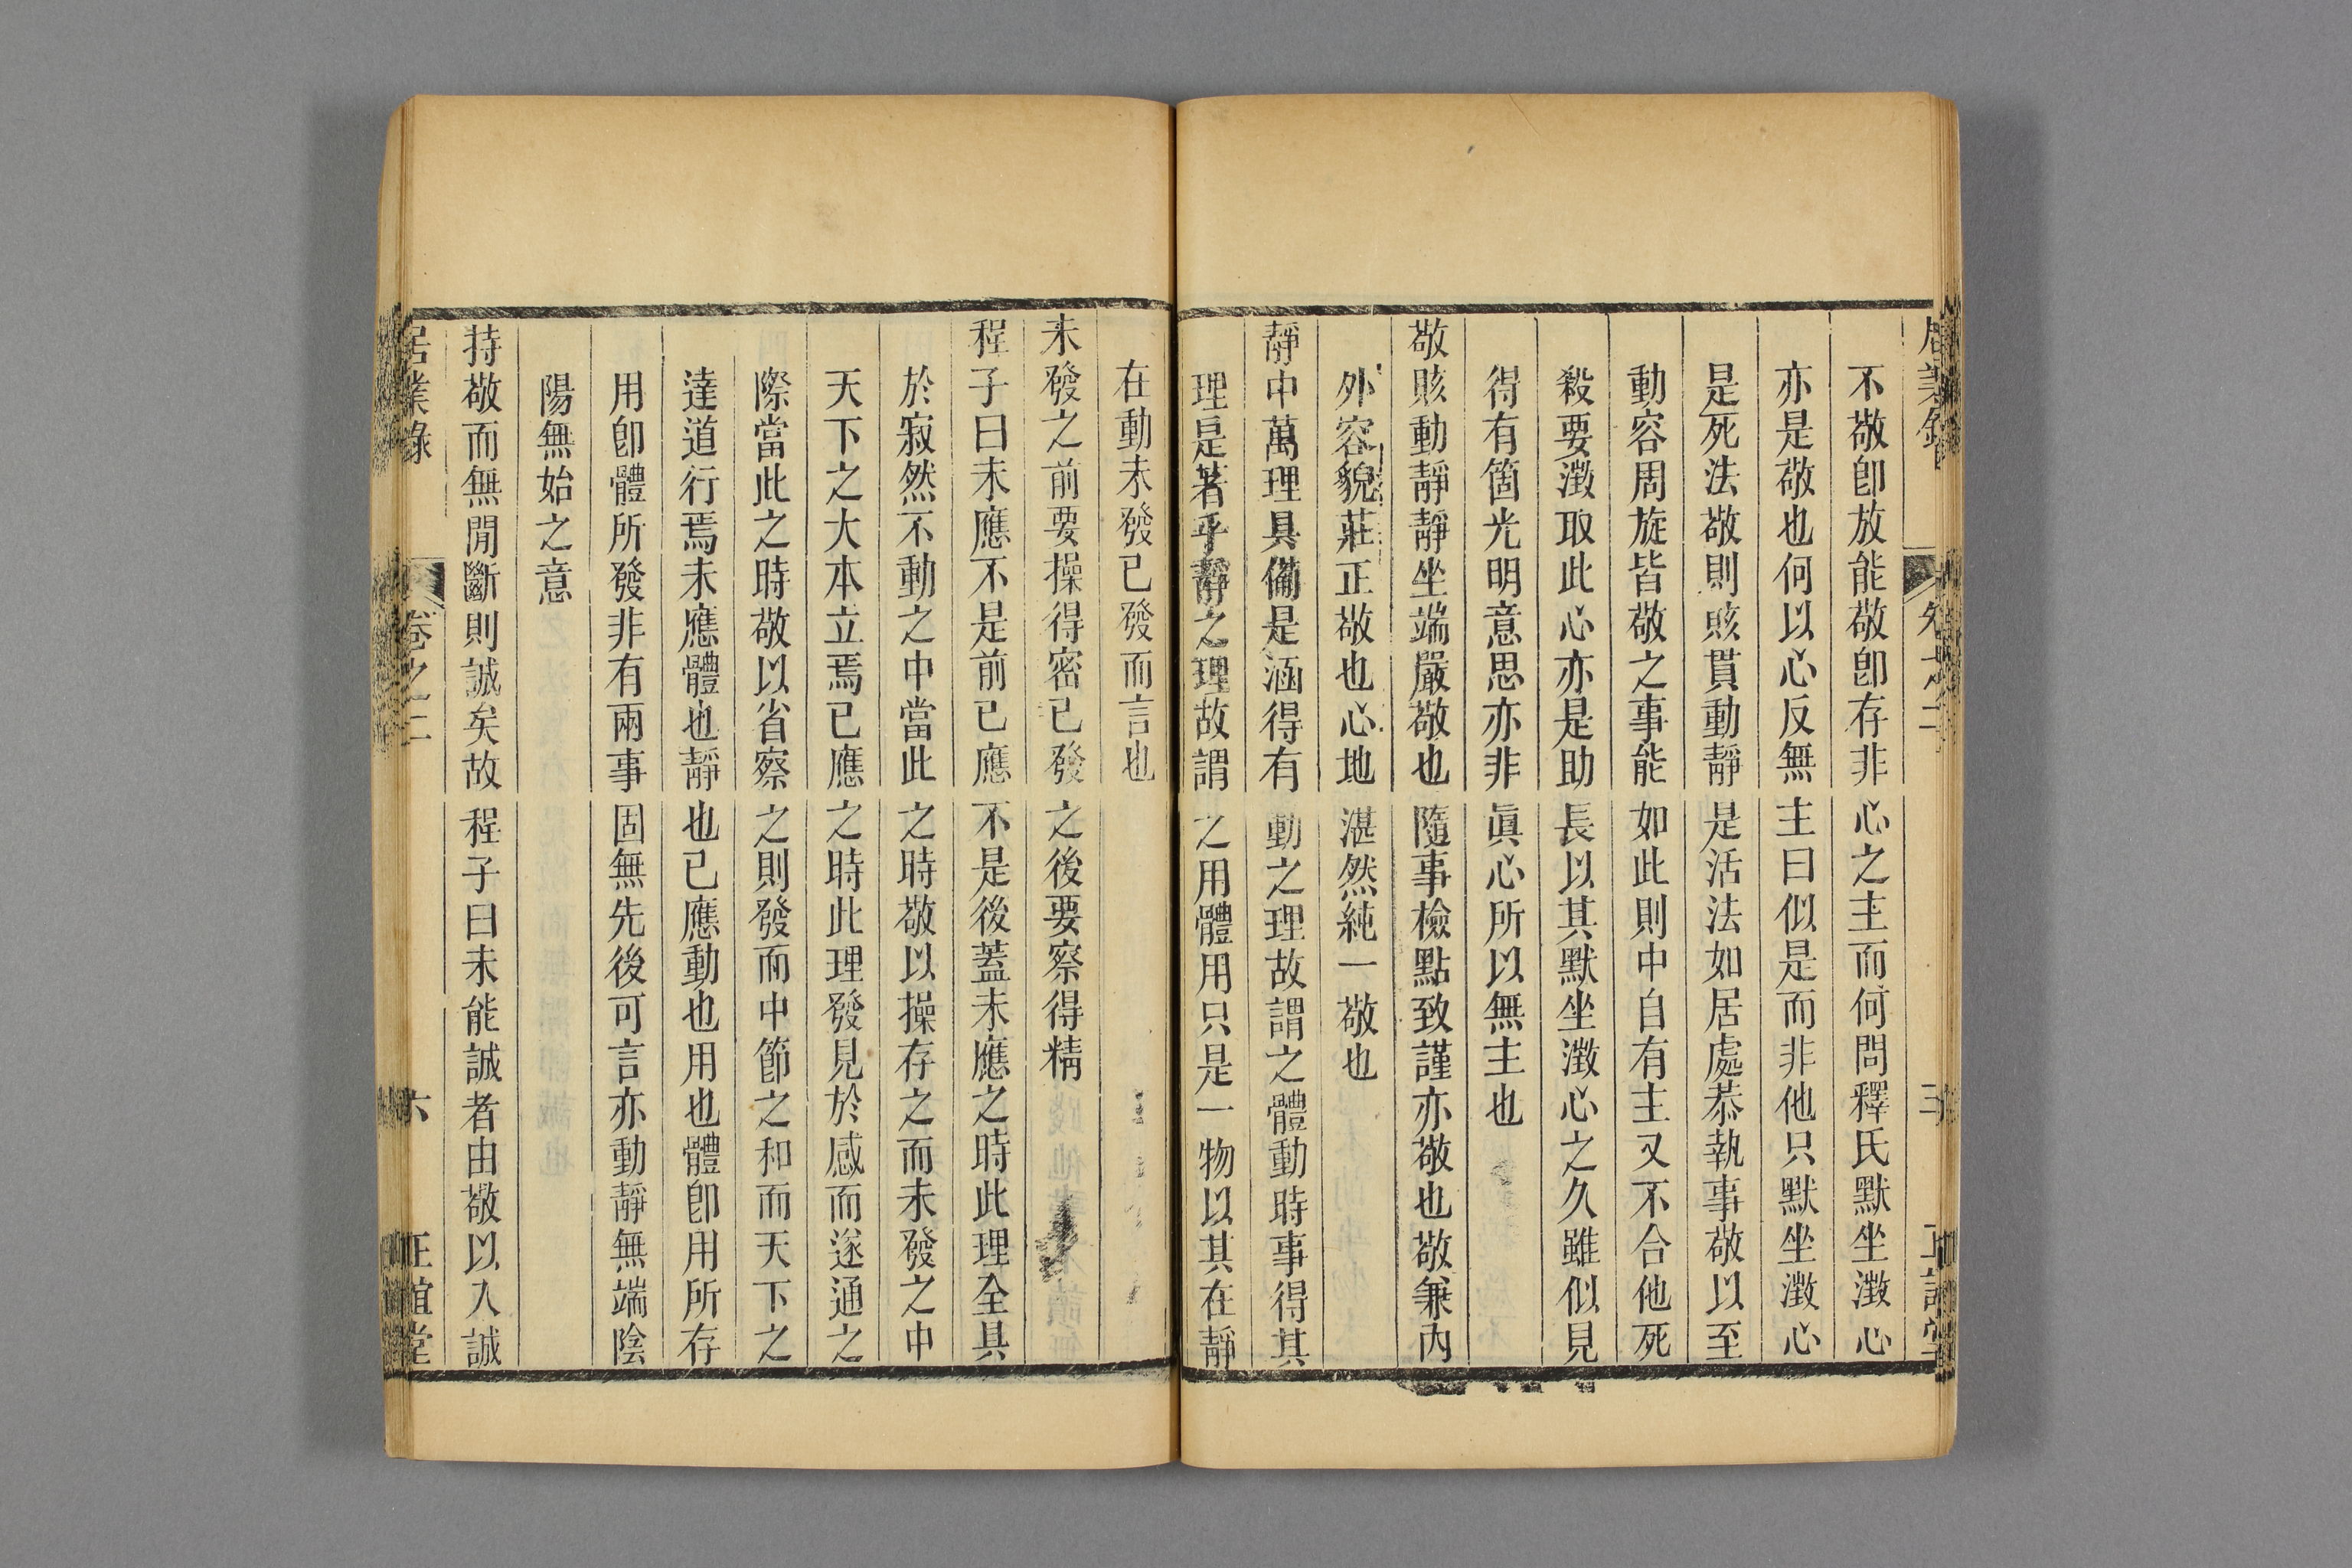 不敬卽放能敬卽存非心之主而何問釋氏默坐澂心
亦是敬也何以心反無主曰似是而非他只默坐澂心
是死法敬則賅貫動靜是活法如居處恭執事敬以至
動容周旋皆敬之事能如此則中自有主又不合他死
殺要澂取此心亦是助長以其默坐澂心之久雖似見
得有箇光明意思亦非眞心所以無主也
敬賅動靜靜坐端嚴敬也隨事檢點致謹亦敬也敬兼內
外容貌莊正敬也心地湛然純一敬也
靜中萬理具備是涵得有動之理故謂之體動時事得其
理是著乎靜之理故謂之用體用只是一物以其在靜
在動未發已發而言也
未發之前要操得密已發之後要察得精
程子曰未應不是前已應不是後蓋未應之時此理全具
於寂然不動之中當此之時敬以操存之而未發之中
天下之大本立焉已應之時此理發見於感而遂通之
際當此之時敬以省察之則發而中節之和而天下之
達道行焉未應體也靜也已應動也用也體卽用所存
用卽體所發非有兩事固無先後可言亦動靜無端陰
陽無始之意
持敬而無閒斷則誠矣故程子曰未能誠者由敬以入誠
居業錄 卷之二 六 正誼堂